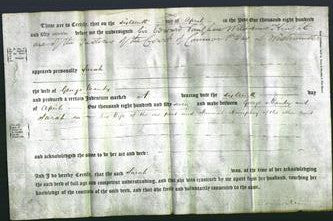 These are to Certify, that on the sixteenth day of April in the Year One thousand eight hundred
and fifty seven before me the undersigned Sir Edward Vaughan Williams Knight
one of the Justices of the Court of Common Pleas at Westminster
appeared personally Sarah
the wife of George
and produced a certain Indenture marked A bearing date the sixteenth day
of April One thousand eight hundred and fifty seven and made between George and
Sarah his Wife of the one part and of the other part
and acknowledged the same to be her act and deed:
And I do hereby Certify, that the said Sarah was, at the time of her acknowledging
the said deed of full age and competent understanding, and that she was examined by me apart from her husband, touching her
knowledge of the contents of the said deed, and that she freely and voluntarily consented to the same.